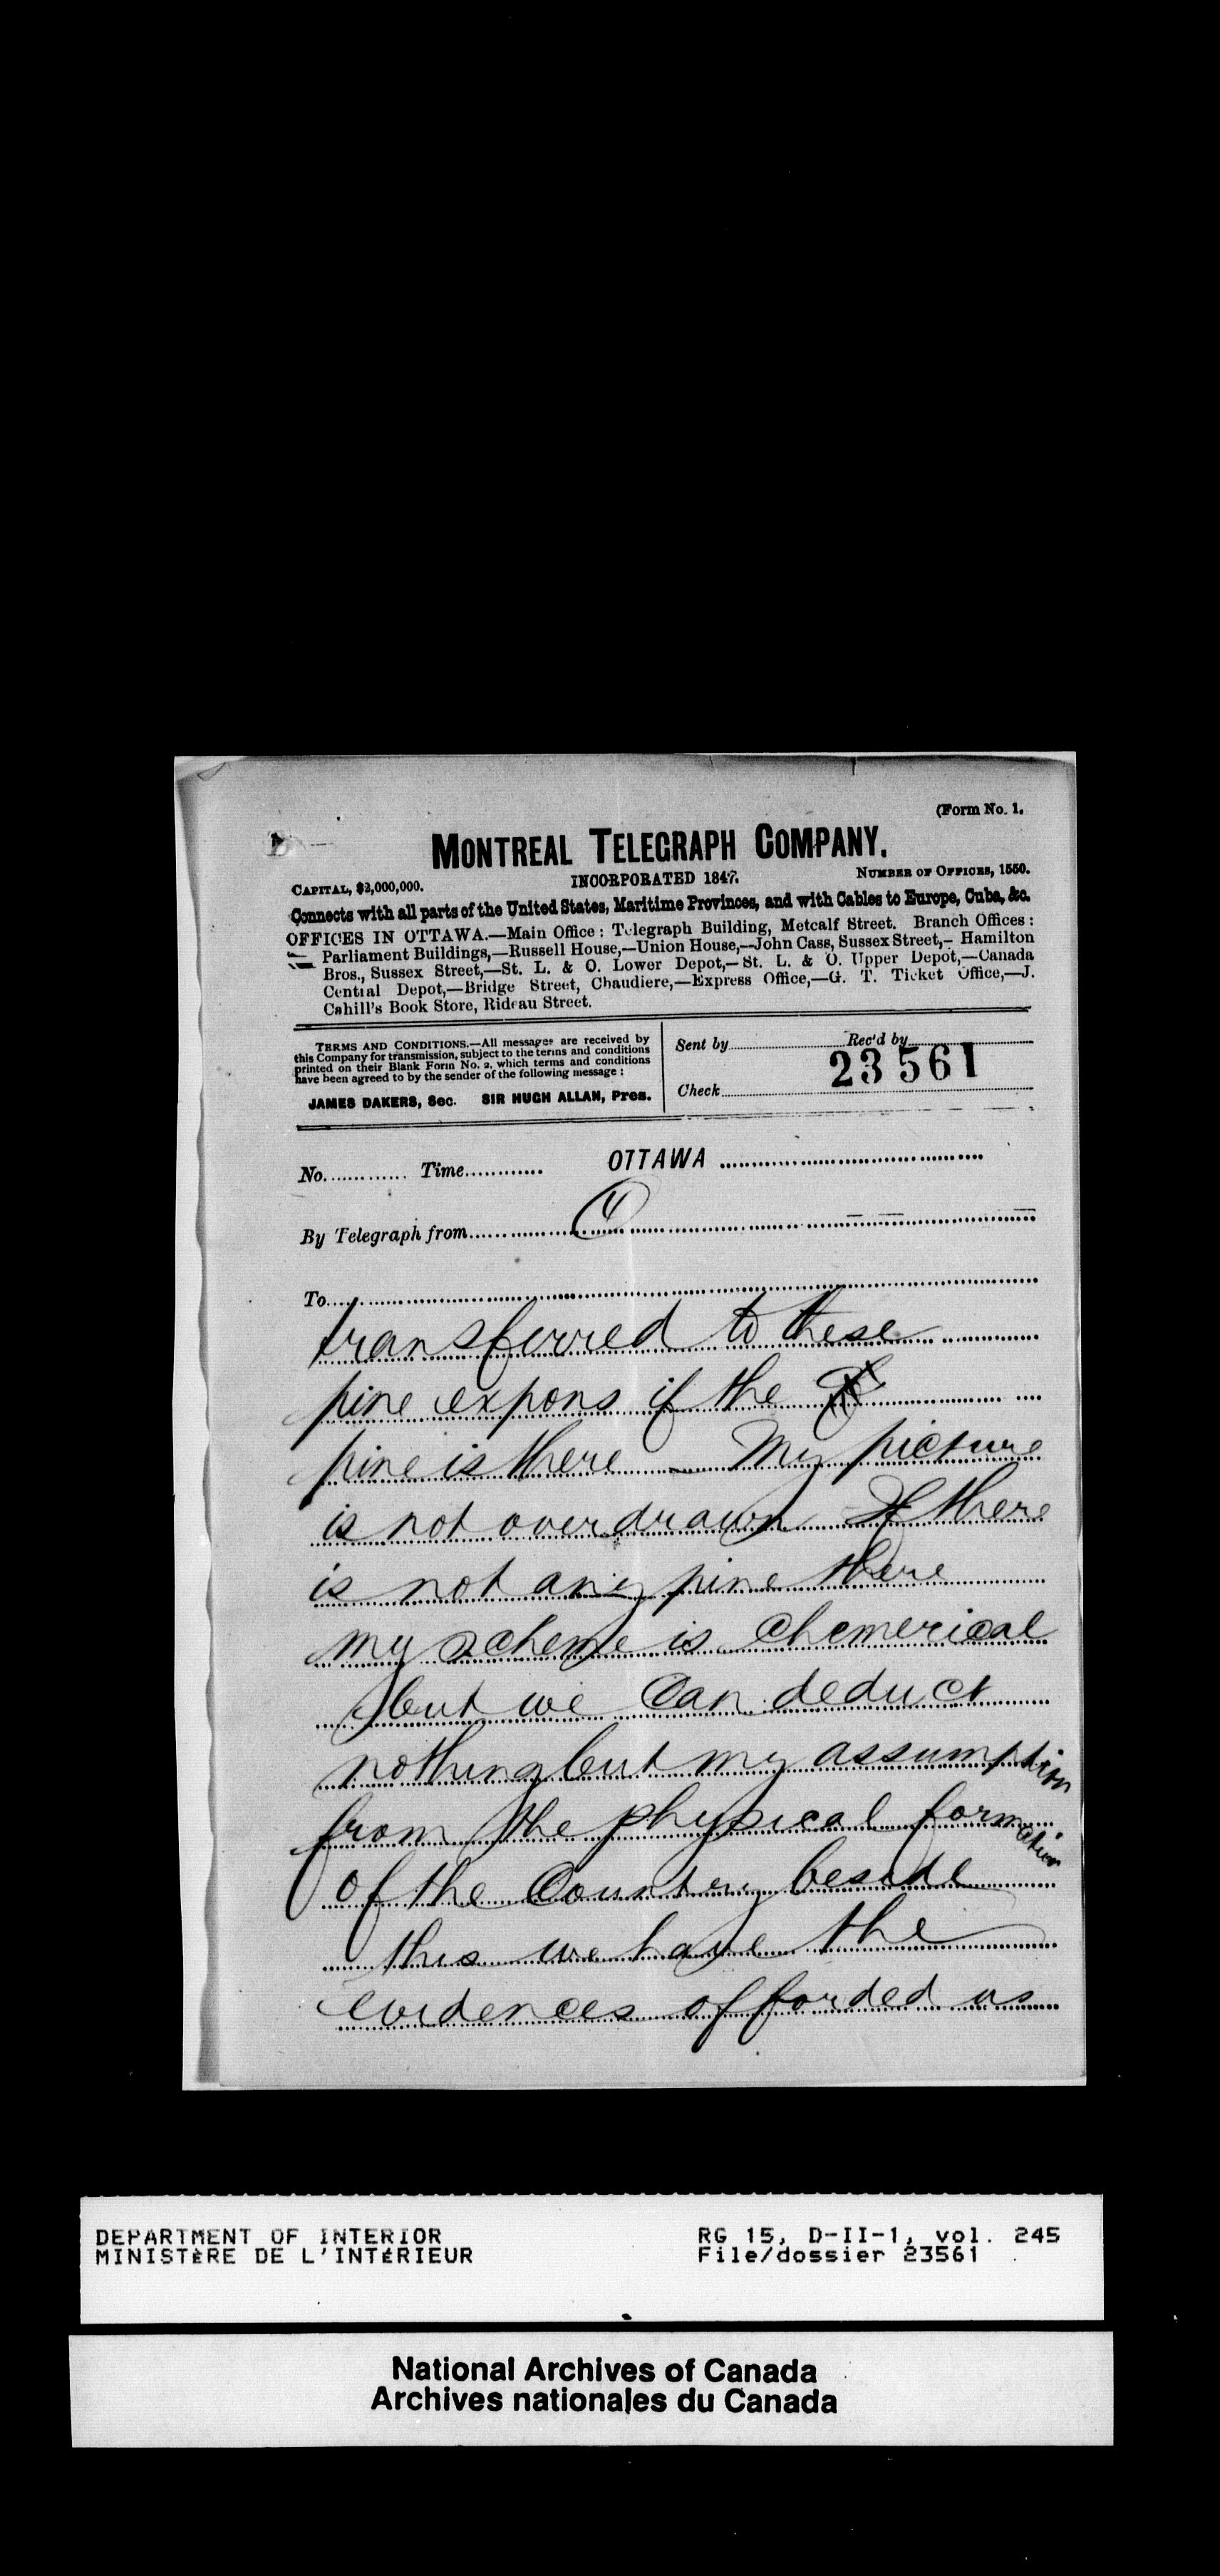 (Form No. 1.
MONTREAL TELEGRAPH COMPANY.
CAPITAL, $2,000,000. INCORPORATED 1847. NUMBER OF OFFICES, 1550.
Connects with all parts of the United States, Maritime Provinces, and with Cables to Europe, Cuba, &c.
OFFICES IN OTTAWA.—Main Office: Telegraph Building, Metcalf Street. Branch Offices:
Parliament Buildings,—Russell House,—Union House,—John Cass, Sussex Street,—Hamilton
Bros., Sussex Street,—St. L. & O. Lower Depot,—St. L. & O. Upper Depot,—Canada
Central Depot,—Bridge Street, Chaudiere,—Express Office,—G. T. Ticket Office,—J.
Cahill's Book Store, Rideau Street.
TERMS AND CONDITIONS.—All messages are received by
this Company for transmission, subject to the terms and conditions
printed on their Blank Form No. 2, which terms and conditions
have been agreed to by the sender of the following message:
JAMES DAKERS, Sec. SIR HUGH ALLAN, Pres.
Sent by Rec'd by
23561
Check
No. Time OTTAWA
By Telegraph from
To
transferred to these
pine expons if the
pine is there My picture
is not overdrawn If there
is not any pine there
my scheme is chemerical
but we can deduct
nothing but my assumption
from the physical formation
of the Country beside
this we have the
evidences afforded us
DEPARTMENT OF INTERIOR
MINISTÈRE DE L'INTÉRIEUR
RG 15, D-II-1, vol. 245
File/dossier 23561
National Archives of Canada
Archives nationales du Canada